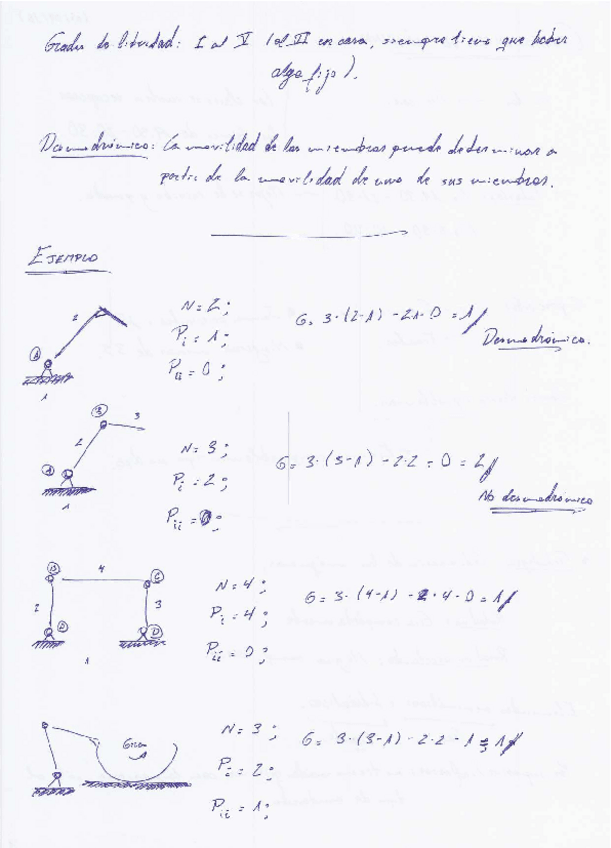 Grados de libertad: I al V (al VI en caso, siempre tiene que haber
algo fijo).
Desmodrómico: La movilidad de los miembros puede determinar a
partir de la movilidad de uno de sus miembros.
EJEMPLO
2
A
1
N = 2;
Pi = 1;
Pii = 0;
G = 3·(2-1) - 2·1 - 0 = 1
Desmodrómico.
B
3
2
A
1
N = 3;
Pi = 2;
Pii = 0;
G = 3·(3-1) - 2·2 - 0 = 2
No desmodrómico
B
4
C
2
3
A
D
1
N = 4;
Pi = 4;
Pii = 0;
G = 3·(4-1) - 2·4 - 0 = 1
Giran
N = 3;
Pi = 2;
Pii = 1;
G = 3·(3-1) - 2·2 - 1 = 1